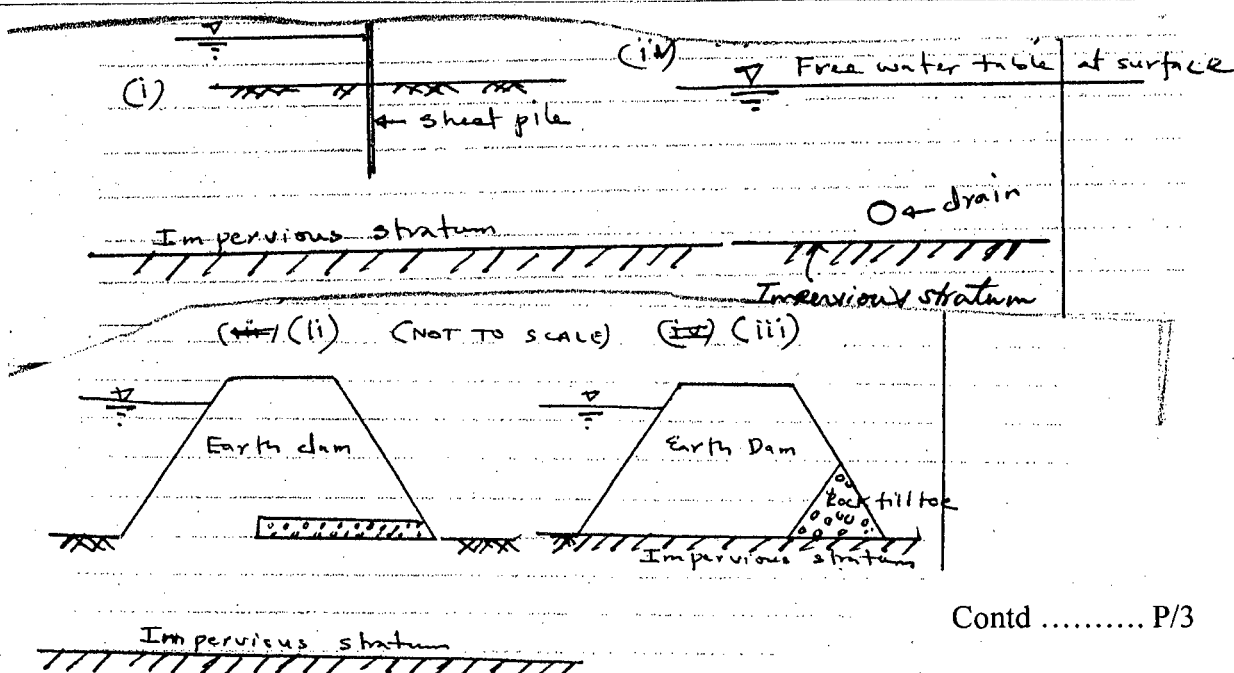 (i)
sheet pile
Impervious stratum
(iv)
Free water table at surface
drain
Impervious stratum
(ii) (NOT TO SCALE) (iii)
Earth dam
Earth Dam
Rock fill toe
Impervious stratum
Impervious stratum
Contd .......... P/3